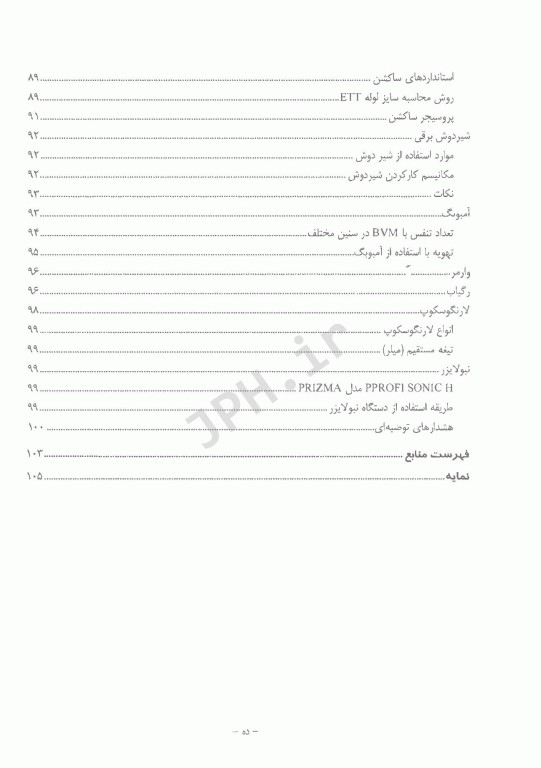 استانداردهای ساکشن ........ ۸۹
روش محاسبه سایز لوله ETT ........ ۸۹
پروسیجر ساکشن ........ ۹۱
شیردوش برقی ........ ۹۲
موارد استفاده از شیر دوش ........ ۹۲
مکانیسم کارکردن شیردوش ........ ۹۲
نکات ........ ۹۳
آمبوبگ ........ ۹۳
تعداد تنفس با BVM در سنین مختلف ........ ۹۴
تهویه با استفاده از آمبوبگ ........ ۹۵
وارمر ........ ۹۶
رگیاب ........ ۹۶
لارنگوسکوپ ........ ۹۸
انواع لارنگوسکوپ ........ ۹۹
تیغه مستقیم (میلر) ........ ۹۹
نبولایزر ........ ۹۹
PPROFI SONIC H مدل PRIZMA ........ ۹۹
طریقه استفاده از دستگاه نبولایزر ........ ۹۹
هشدارهای توصیه‌ای ........ ۱۰۰
فهرست منابع ........ ۱۰۳
نمایه ........ ۱۰۵
JPH.ir
– ده –